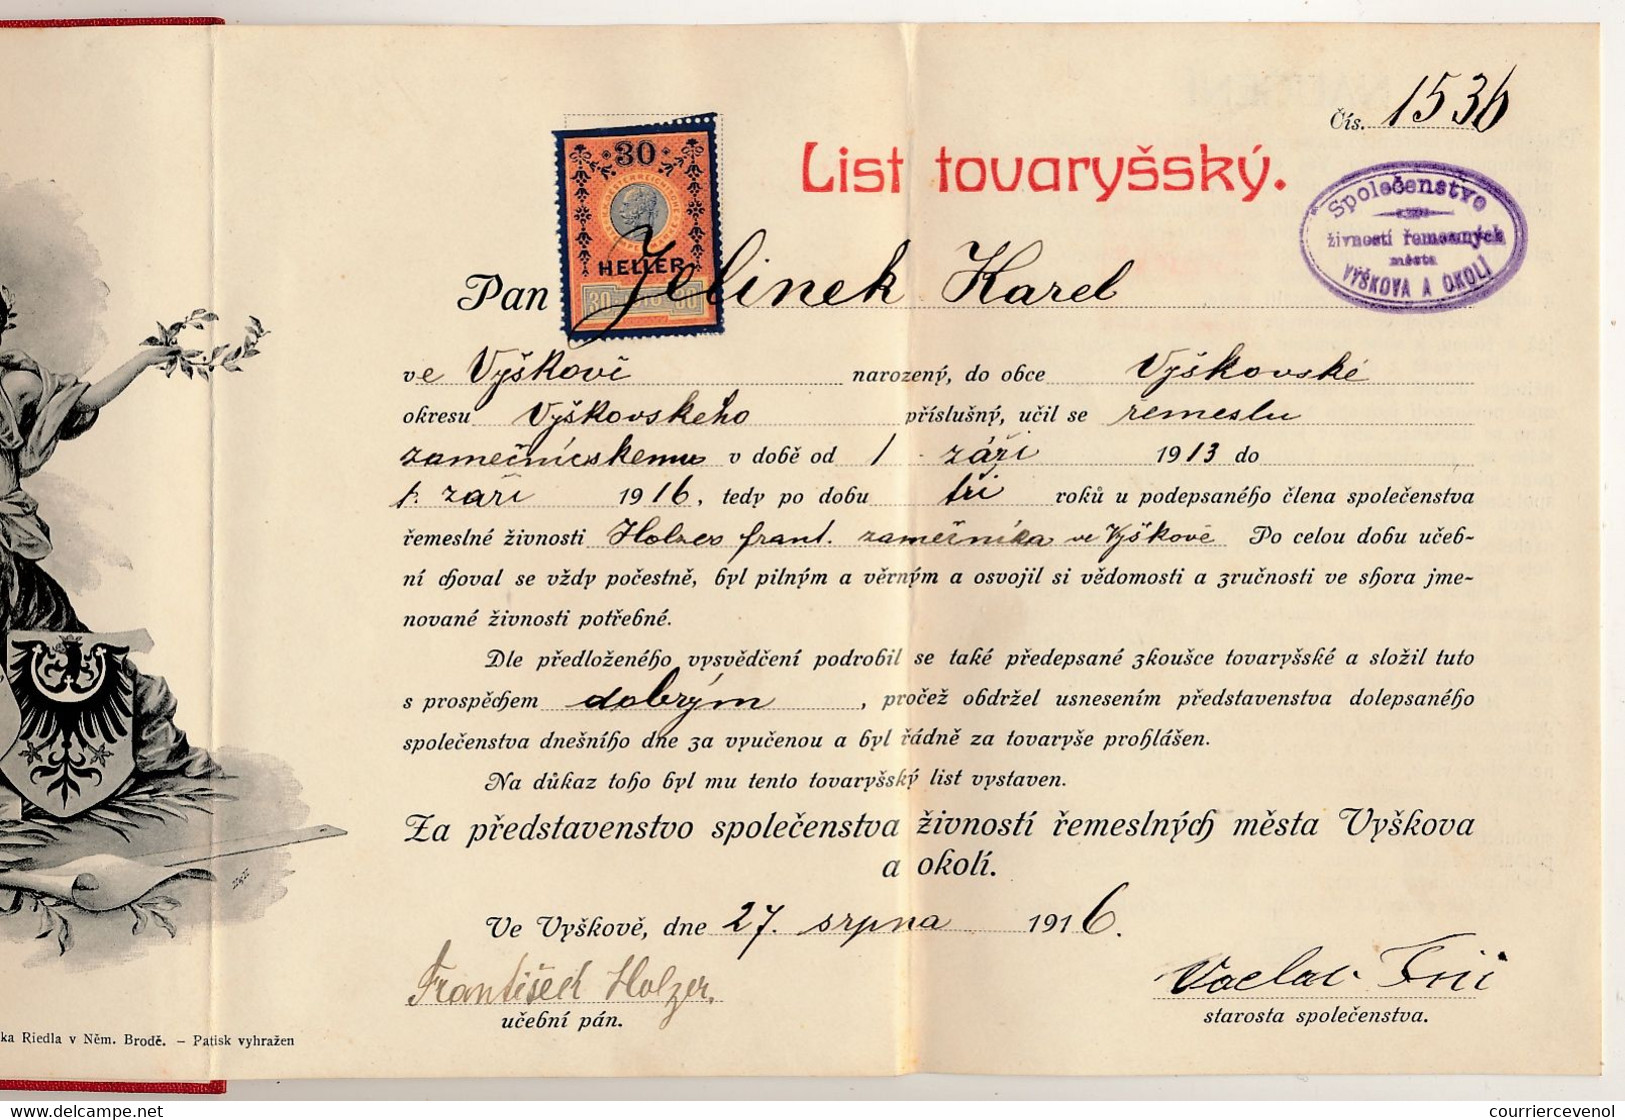 Čís. 1536
List tovaryšský.
Společenstvo
živností řemeslných
města
VÝŠKOVA A OKOLÍ
30
HELLER
30 30
Pan Jelinek Karel
ve Vyškově narozený, do obce Vyškovské
okresu Vyškovského příslušný, učil se řemeslu
zámečnickému v době od 1. září 1913 do
1. září 1916, tedy po dobu tři roků u podepsaného člena společenstva
řemeslné živnosti Holzer Frant. zámečníka ve Vyškově Po celou dobu učeb-
ní choval se vždy počestně, byl pilným a věrným a osvojil si vědomosti a zručnosti ve shora jme-
nované živnosti potřebné.
Dle předloženého vysvědčení podrobil se také předepsané zkoušce tovaryšské a složil tuto
s prospěchem dobrým, pročež obdržel usnesením představenstva dolepsaného
společenstva dnešního dne za vyučenou a byl řádně za tovaryše prohlášen.
Na důkaz toho byl mu tento tovaryšský list vystaven.
Za představenstvo společenstva živností řemeslných města Vyškova
a okolí.
Ve Vyškově, dne 27. srpna 1916.
František Holzer.
učební pán.
Vaclav
starosta společenstva.
ka Riedla v Něm. Brodě. — Patisk vyhražen
couriercevenol